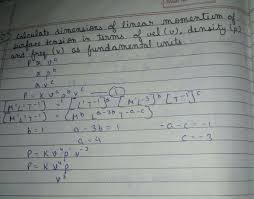 Calculate dimensions of linear momentum of
surface tension in terms of vel (v), density (ρ)
and freq (ν) as fundamental units.
P ∝ v^a
∝ ρ^b
∝ ν^c
P = K v^a ρ^b ν^c — ①
[M¹L¹T⁻¹] [L¹T⁻¹]^a [M¹L⁻³]^b [T⁻¹]^c
[M¹L¹T⁻¹] = [M^b L^a-3b T^-a-c]
b = 1 a - 3b = 1 -a - c = -1
a = 4 c = -3
P = K v⁴ ρ¹ ν⁻³
P = K v⁴ ρ
ν³